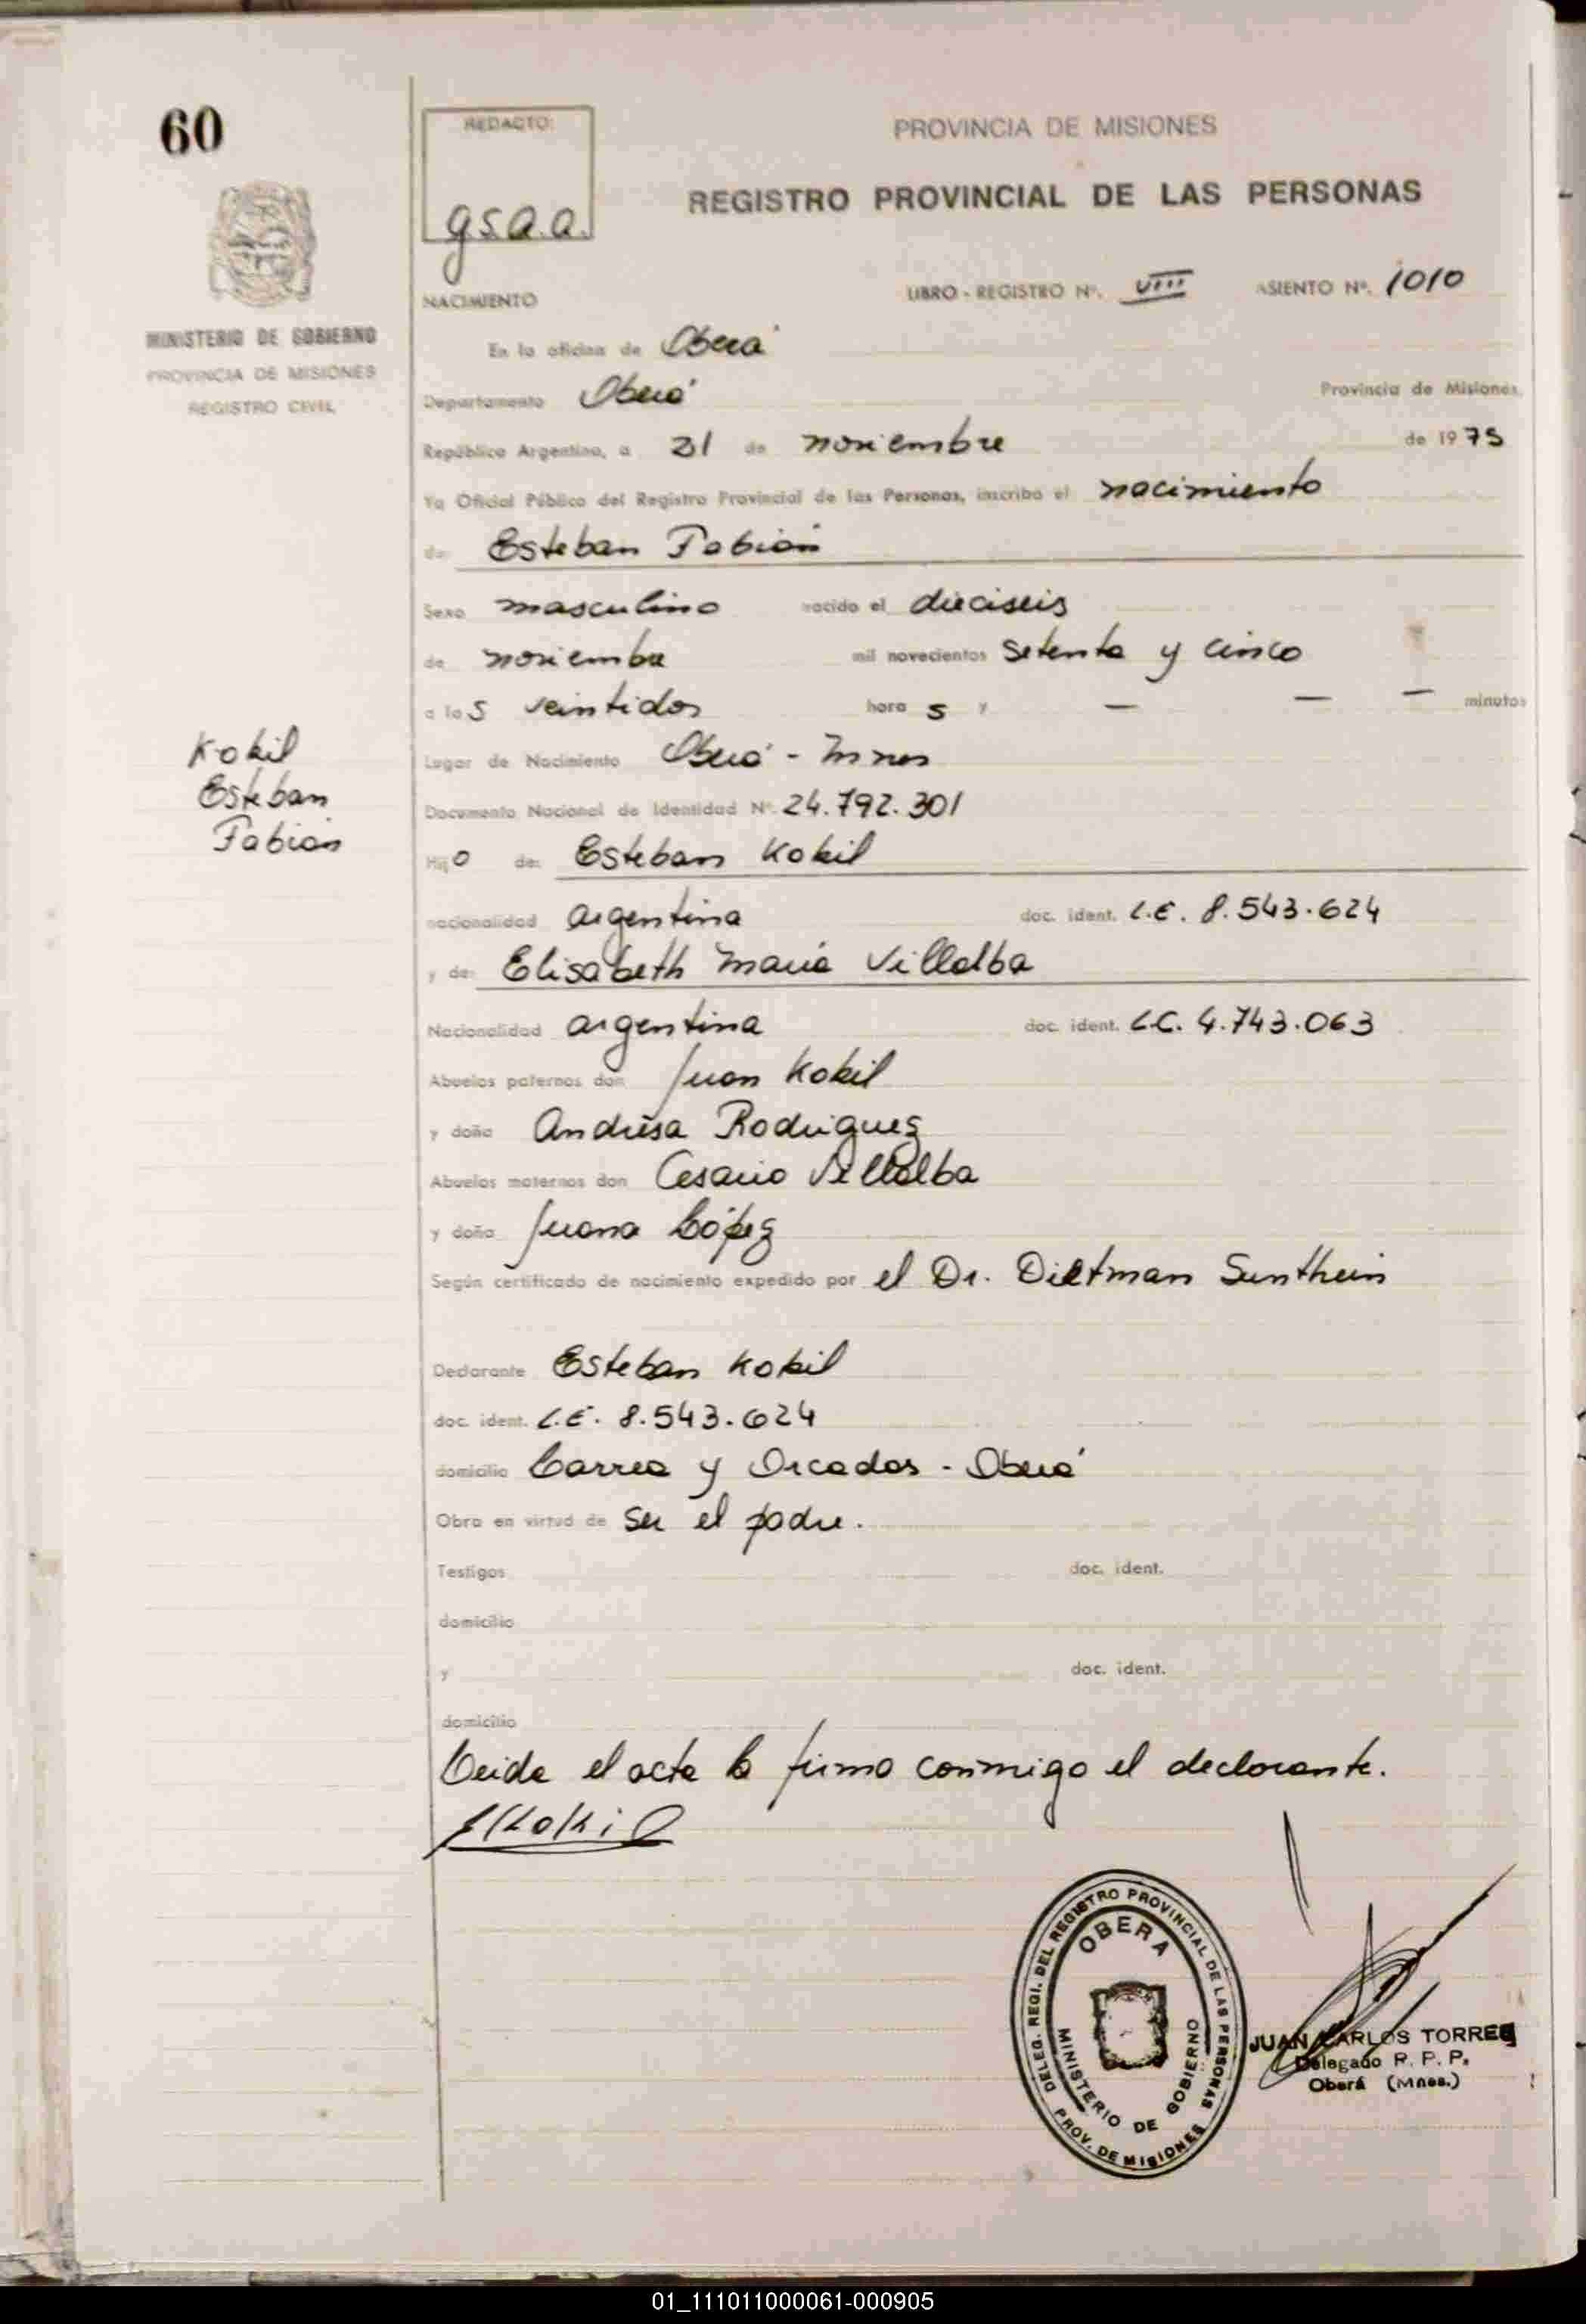 60
REDACTO:
g.s.a.a.
PROVINCIA DE MISIONES
REGISTRO PROVINCIAL DE LAS PERSONAS
MINISTERIO DE GOBIERNO
PROVINCIA DE MISIONES
REGISTRO CIVIL
NACIMIENTO
LIBRO - REGISTRO Nº. VIII ASIENTO Nº. 1010
En la oficina de Oberá
Departamento Oberá Provincia de Misiones,
República Argentina, a 21 de noviembre de 1975
Yo Oficial Público del Registro Provincial de las Personas, inscribo el nacimiento
de: Esteban Fabián
Sexo masculino nacido el dieciseis
de noviembre mil novecientos setenta y cinco
a las veintidos horas y — — — minutos
Kokil
Esteban
Fabián
Lugar de Nacimiento Oberá - Mnes
Documento Nacional de Identidad Nº 24.792.301
Hijo de: Esteban Kokil
nacionalidad argentina doc. ident. L.E. 8.543.624
y de: Elisabeth María Villalba
Nacionalidad argentina doc. ident. L.C. 4.743.063
Abuelos paternos don Juan Kokil
y doña Andresa Rodriguez
Abuelos maternos don Cesario Villalba
y doña Juana López
Según certificado de nacimiento expedido por el Dr. Dietman Sunthein
Declarante Esteban Kokil
doc. ident. L.E. 8.543.624
domicilio Carrea y Orcadas - Oberá
Obra en virtud de ser el padre.
Testigos doc. ident.
domicilio
y doc. ident.
domicilio
Leida el acta la firma conmigo el declarante.
DELEG. REGI. DEL REGISTRO PROVINCIAL DE LAS PERSONAS
OBERA
MINISTERIO DE GOBIERNO
PROV. DE MISIONES
JUAN CARLOS TORRES
Delegado R. P. P.
Oberá (Mnes.)
01_111011000061-000905